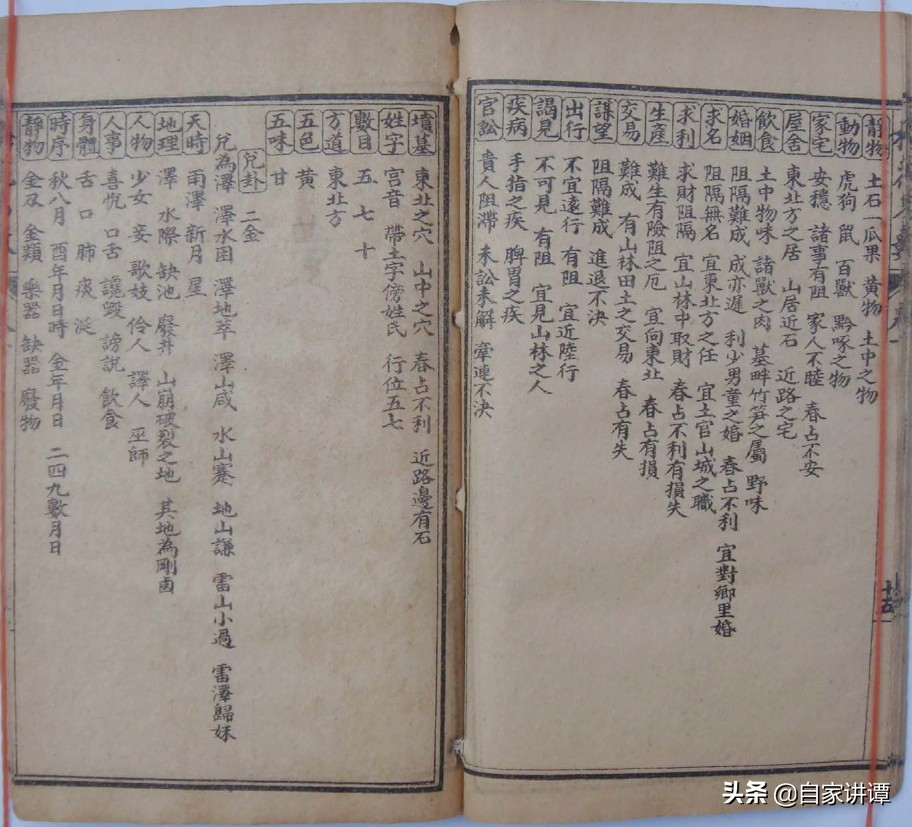 靜物 土石 瓜果 黃物 土中之物
動物 虎狗 鼠 百獸 黔啄之物
家宅 安穩 諸事有阻 家人不睦 春占不安
屋舍 東北方之居 山居近石 近路之宅
飲食 土中物味 諸獸之肉 墓畔竹笋之屬 野味
婚姻 阻隔難成 成亦遲 利少男童之婚 春占不利 宜對鄉里婚
求名 阻隔無名 宜東北方之任 宜土官山城之職
求利 求財阻隔 宜山林中取財 春占不利有損失
生產 難生有險阻之厄 宜向東北 春占有損
交易 難成 有山林田土之交易 春占有失
謀望 阻隔難成 進退不決
出行 不宜遠行 有阻 宜近陸行
謁見 不可見 有阻 宜見山林之人
疾病 手指之疾 脾胃之疾
官訟 貴人阻滯 未訟未解 牽連不決
十五
墳墓 東北之穴 山中之穴 春占不利 近路邊有石
姓字 宮音 帶土字傍姓氏 行位五七
數目 五 七 十
方道 東北方
五色 黃
五味 甘
兌卦 二金
兌為澤 澤水困 澤地萃 澤山咸 水山蹇 地山謙 雷山小過 雷澤歸妹
天時 雨澤 新月 星
地理 澤 水際 缺池 廢井 山崩破裂之地 其地為剛鹵
人物 少女 妾 歌妓 伶人 譯人 巫師
人事 喜悅 口舌 讒毀 謗說 飲食
身體 舌 口 肺 痰 涎
時序 秋八月 酉年月日時 金年月日 二四九數月日
靜物 金刃 金類 樂器 缺器 廢物
头条 @自家讲谭